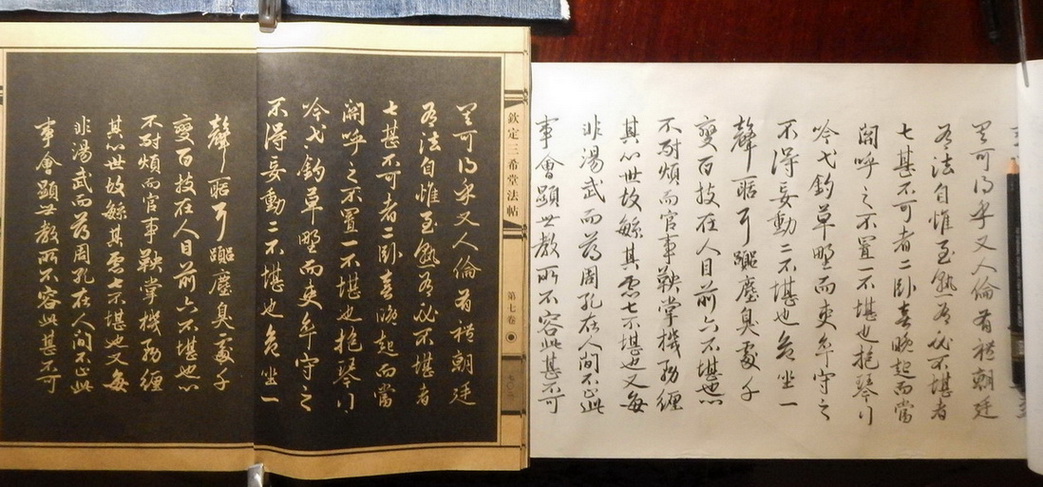 欽定三希堂法帖
第七卷
其可得乎又人倫有禮朝廷
有法自惟至熟有必不堪者
七甚不可者二臥喜晚起而當
關呼之不置一不堪也抱琴行
吟弋釣草野而吏卒守之
不得妄動二不堪也危坐一
聲聒耳囂塵臭處千
變百技在人目前六不堪也心
不耐煩而官事鞅掌機務纏
其心世故繁其慮七不堪也又每
非湯武而薄周孔在人間不止此
事會顯世教所不容此甚不可
其可得乎又人倫有禮朝廷
有法自惟至熟有必不堪者
七甚不可者二臥喜晚起而當
關呼之不置一不堪也抱琴行
吟弋釣草野而吏卒守之
不得妄動二不堪也危坐一
聲聒耳囂塵臭處千
變百技在人目前六不堪也心
不耐煩而官事鞅掌機務纏
其心世故繁其慮七不堪也又每
非湯武而薄周孔在人間不止此
事會顯世教所不容此甚不可